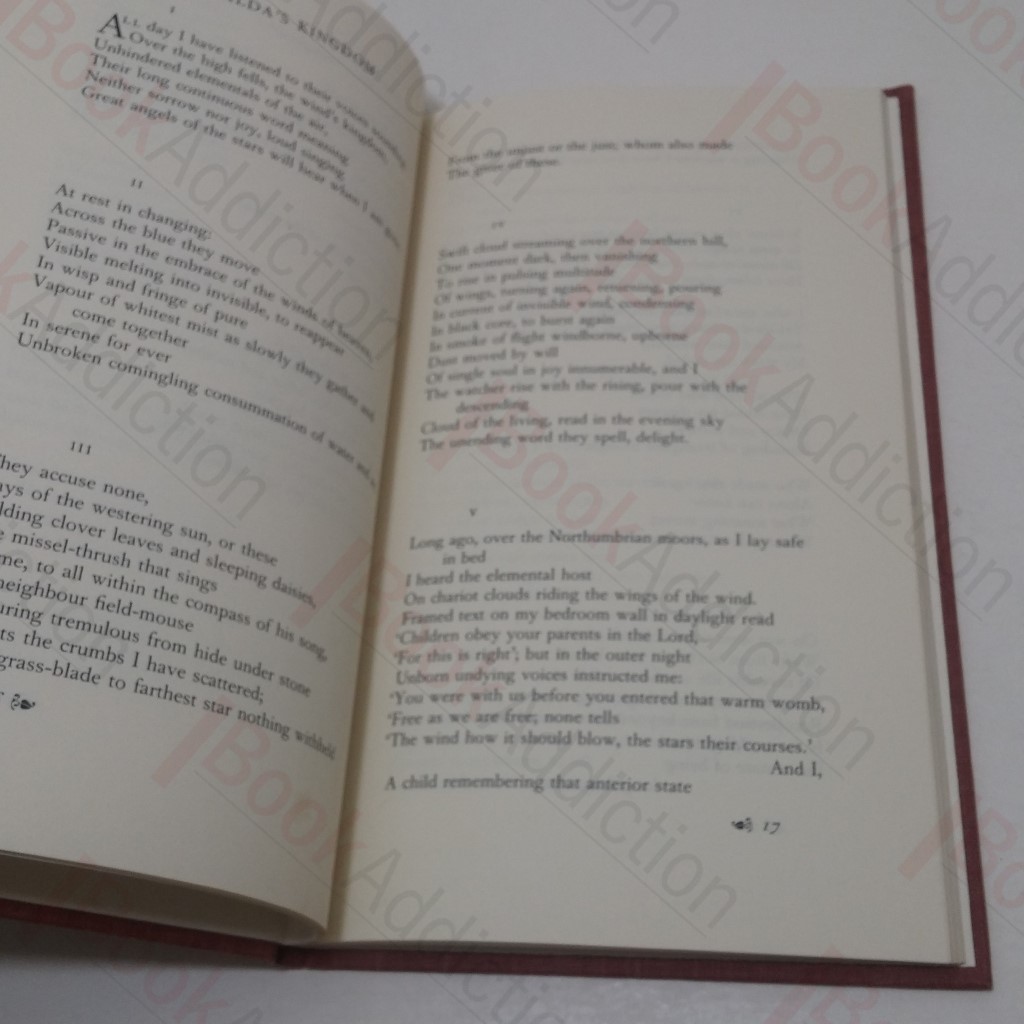 LDA'S KINGDOM
I
ALL day I have listened to their voices sounding
Over the high fells, the wind's kingdom,
Unhindered elementals of the air,
Their long continuous word meaning
Neither sorrow not joy, loud singing
Great angels of the stars will hear when I am
II
At rest in changing:
Across the blue they move
Passive in the embrace of the winds of heaven,
Visible melting into invisible, to reappear
In wisp and fringe of pure
Vapour of whitest mist as slowly they gather and
come together
In serene for ever
Unbroken comingling consummation of water and
III
They accuse none,
ays of the westering sun, or these
lding clover leaves and sleeping daisies,
missel-thrush that sings
me, to all within the compass of his song,
neighbour field-mouse
uring tremulous from hide under stone
ts the crumbs I have scattered;
grass-blade to farthest star nothing withheld
From the unjust or the just, whom also made
The giver of these.
IV
Swift cloud streaming over the northern hill,
One moment dark, then vanishing
To rise in pulsing multitude
Of wings, turning again, returning, pouring
In current of invisible wind, condensing
In black core, to burst again
In smoke of flight windborne, upborne
Dust moved by will
Of single soul in joy innumerable, and I
The watcher rise with the rising, pour with the
descending
Cloud of the living, read in the evening sky
The unending word they spell, delight.
V
Long ago, over the Northumbrian moors, as I lay safe
in bed
I heard the elemental host
On chariot clouds riding the wings of the wind.
Framed text on my bedroom wall in daylight read
'Children obey your parents in the Lord,
'For this is right'; but in the outer night
Unborn undying voices instructed me:
'You were with us before you entered that warm womb,
'Free as we are free; none tells
'The wind how it should blow, the stars their courses.'
And I,
A child remembering that anterior state
17
BookAddiction